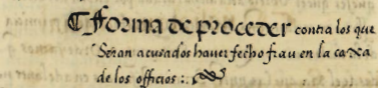 ¶ Forma de proceder contra los que
Seran acusados hauer fecho frau en la caxa
de los officios :.